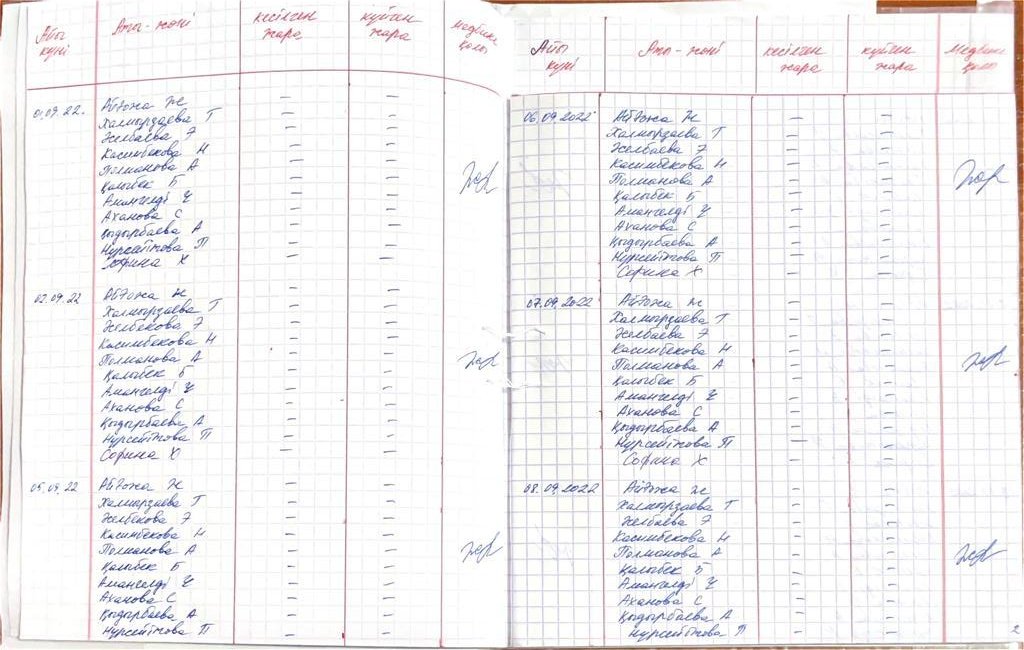 Айы күні Аты-жөні кесілген жара күйген жара медбике қолы
01.09.22. Айдожа Ж — —
Халмырзаева Т — —
Желбаева Э — —
Касимбекова Н — —
Полманова А — —
Қалыбек Б — —
Амангелді Ұ — —
Аханова С — —
Қыдырбаева А — —
Нурсейтова П — —
Софина Х — —
02.09.22 Айдожа Ж — —
Халмырзаева Т — —
Желбекова Э — —
Касимбекова Н — —
Полманова А — —
Қалыбек Б — —
Амангелді Ұ — —
Аханова С — —
Қыдырбаева А — —
Нурсейтова П — —
Софина Х — —
05.09.22 Айдожа Ж — —
Халмырзаева Т — —
Желбекова Э — —
Касимбекова Н — —
Полманова А — —
Қалыбек Б — —
Амангелді Ұ — —
Аханова С — —
Қыдырбаева А — —
Нурсейтова П — —
Айы күні Аты-жөні кесілген жара күйген жара Медбике қолы
06.09.2022 Айдожа Ж — —
Халмырзаева Т — —
Желбаева Э — —
Касимбекова Н — —
Полманова А — —
Қалыбек Б — —
Амангелді Ұ — —
Аханова С — —
Қыдырбаева А — —
Нурсейтова П — —
Софина Х — —
07.09.2022 Айдожа Ж — —
Халмырзаева Т — —
Желбаева Э — —
Касимбекова Н — —
Полманова А — —
Қалыбек Б — —
Амангелді Ұ — —
Аханова С — —
Қыдырбаева А — —
Нурсейтова П — —
Софина Х — —
08.09.2022 Айдожа Ж — —
Халмырзаева Т — —
Желбаева Э — —
Касимбекова Н — —
Полманова А — —
Қалыбек Б — —
Амангелді Ұ — —
Аханова С — —
Қыдырбаева А — —
Нурсейтова П — —
2